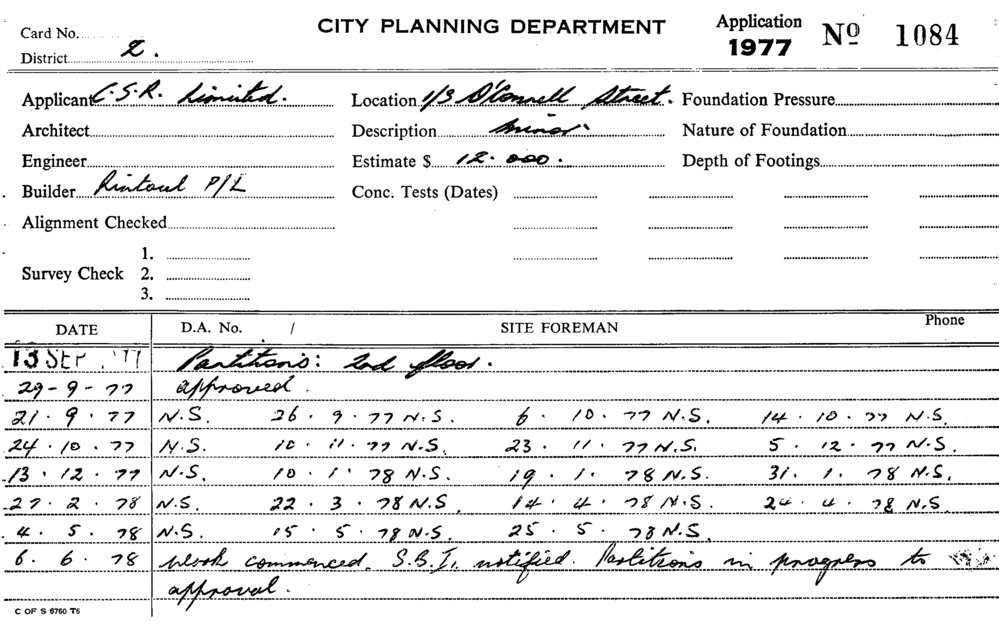 Card No.
CITY PLANNING DEPARTMENT
Application 1977 Nº 1084
District 2.
Applicant C.S.R. Limited. Location 1/3 O'Connell Street. Foundation Pressure
Architect Description minor Nature of Foundation
Engineer Estimate $ 12.000. Depth of Footings
Builder Rintoul P/L Conc. Tests (Dates)
Alignment Checked
1.
Survey Check 2.
3.
DATE D.A. No. / SITE FOREMAN Phone
13 SEP '77 Partitions: 2nd floor.
29-9-77 approved.
21.9.77 N.S. 26.9.77 N.S. 6.10.77 N.S. 14.10.77 N.S.
24.10.77 N.S. 10.11.77 N.S. 23.11.77 N.S. 5.12.77 N.S.
13.12.77 N.S. 10.1.78 N.S. 19.1.78 N.S. 31.1.78 N.S.
27.2.78 N.S. 22.3.78 N.S. 14.4.78 N.S. 24.4.78 N.S.
4.5.78 N.S. 15.5.78 N.S. 25.5.78 N.S.
6.6.78 work commenced. S.B.I. notified. Partitions in progress to
approval.
C OF S 6760 T6